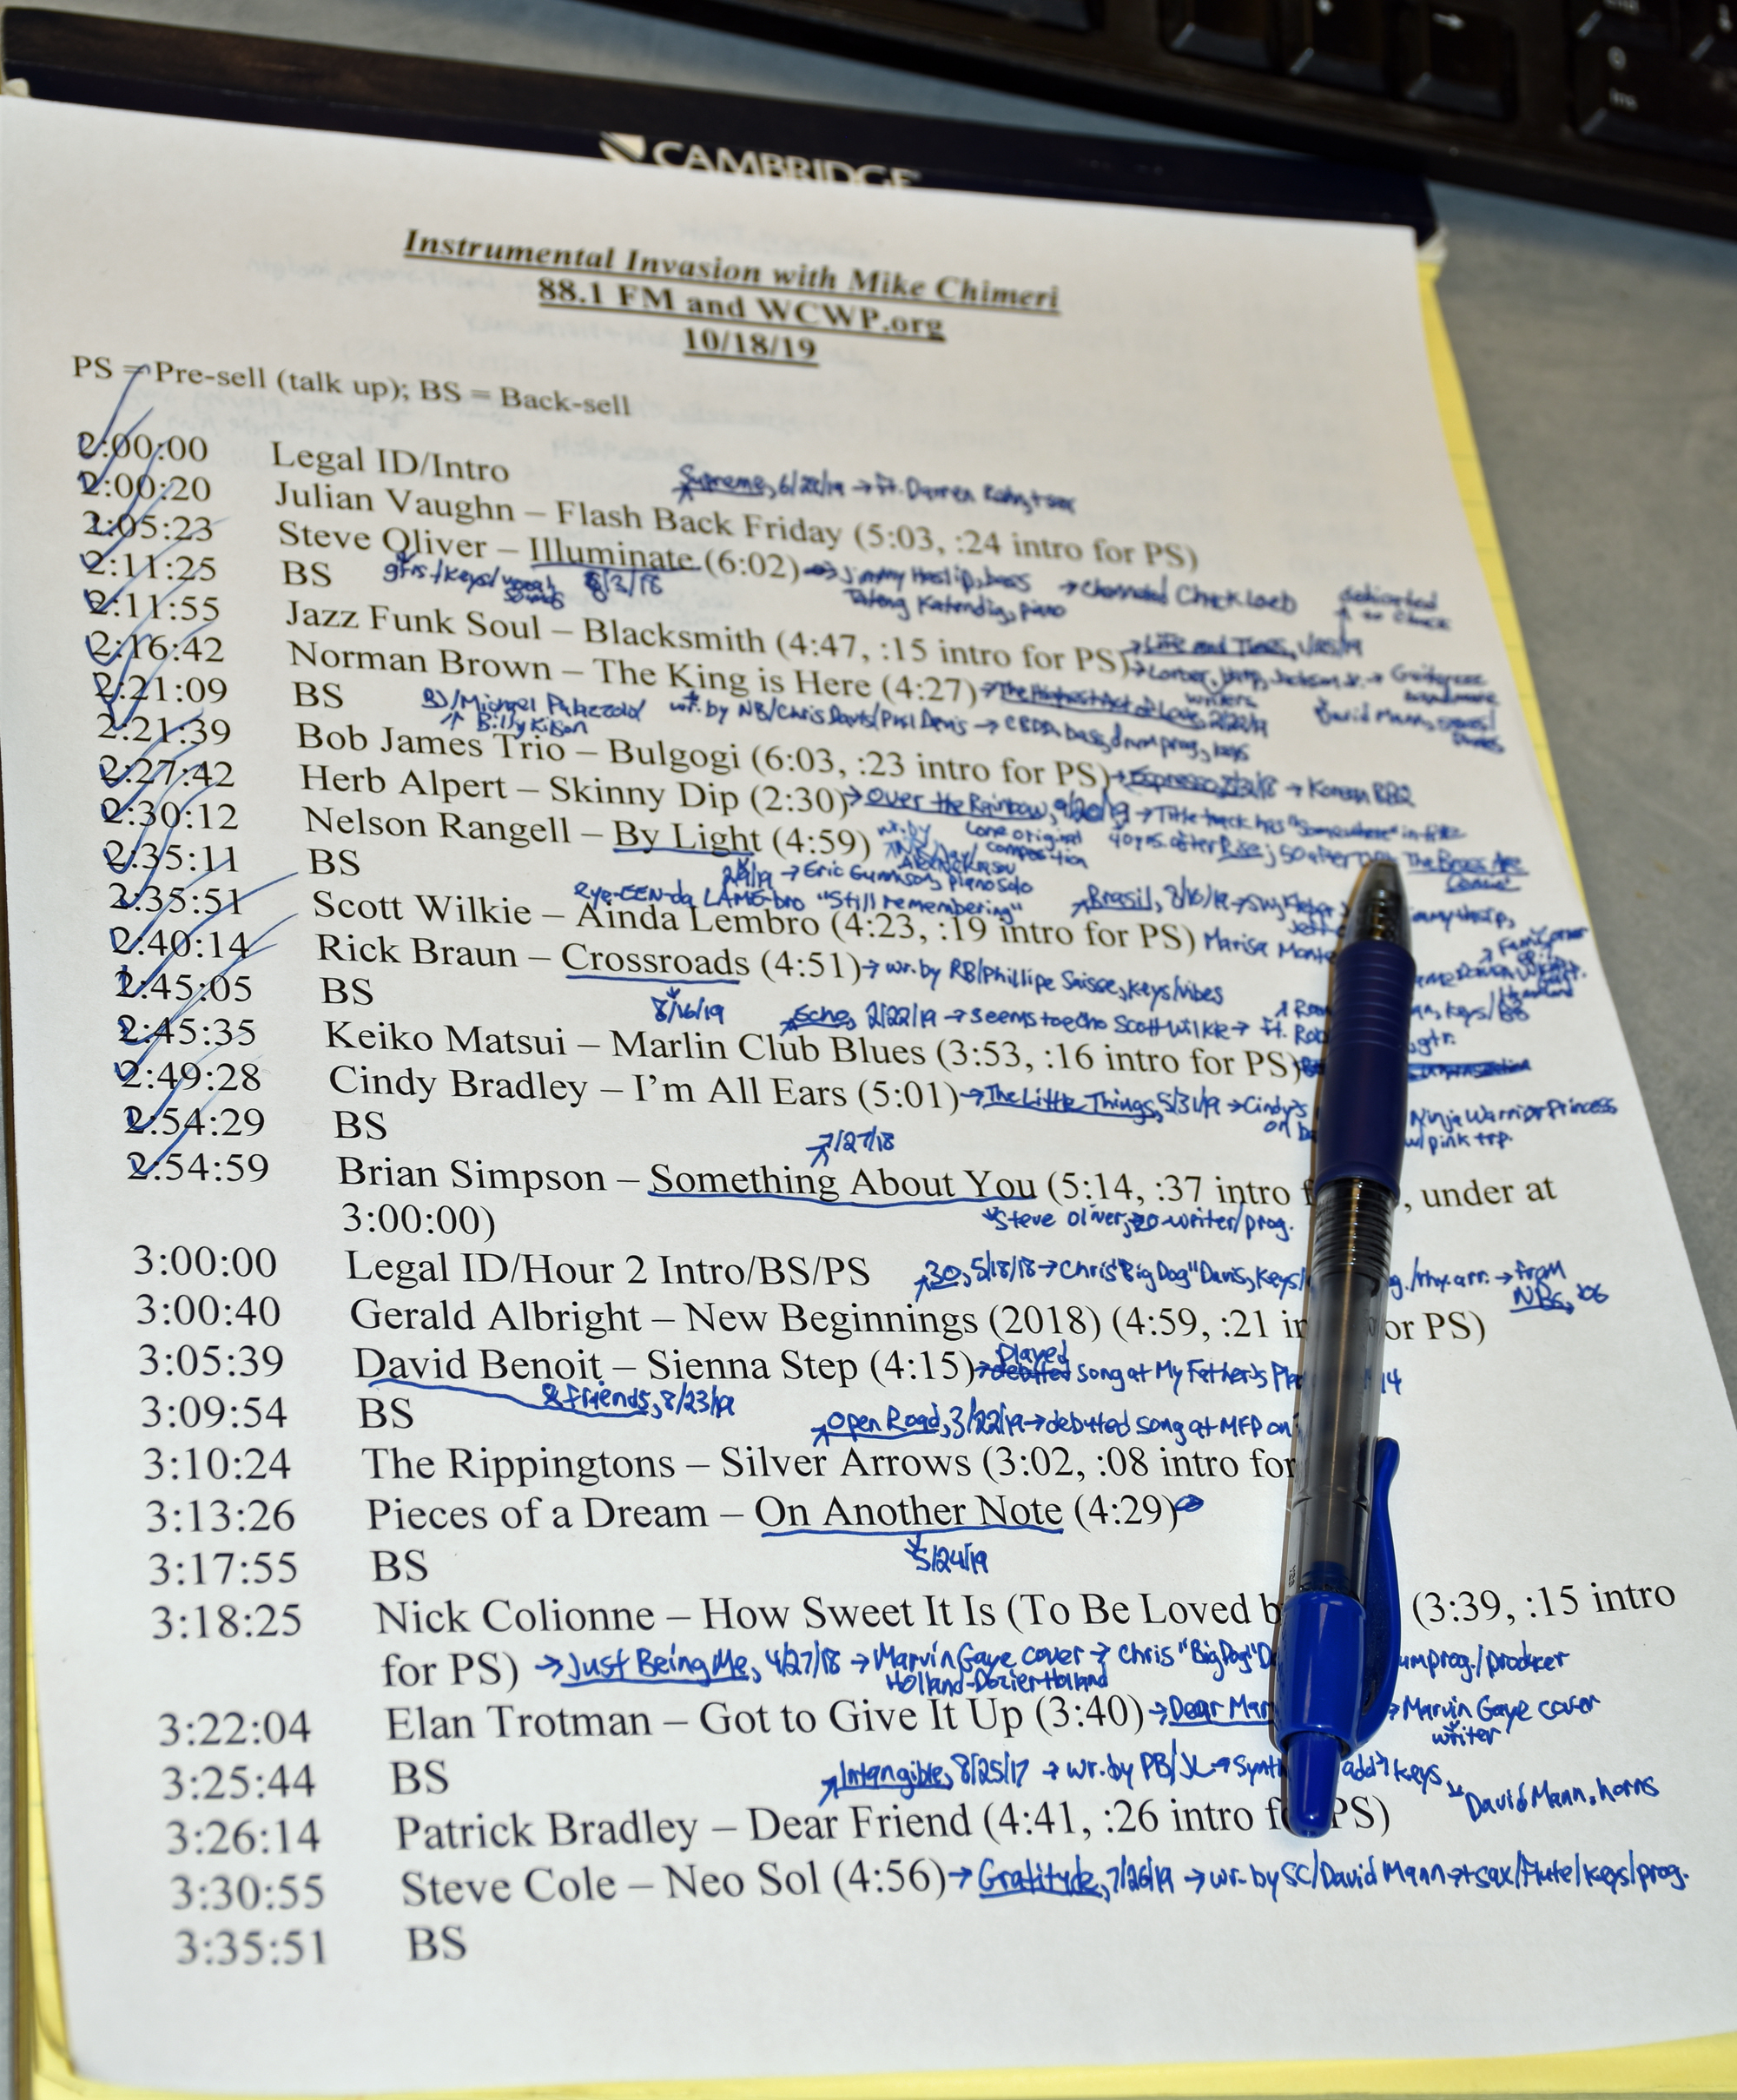 CAMBRIDGE
Instrumental Invasion with Mike Chimeri
88.1 FM and WCWP.org
10/18/19
PS = Pre-sell (talk up); BS = Back-sell
2:00:00 Legal ID/Intro
Supreme, 6/28/19 → ft. Darren Rahn, t sax
2:00:20 Julian Vaughn – Flash Back Friday (5:03, :24 intro for PS)
2:05:23 Steve Oliver – Illuminate (6:02) → Jimmy Haslip, bass → Channeled Chuck Loeb
gtrs/keys/vocal sounds 8/3/18 Tateng Katendig, piano
dedicated to Chuck
2:11:25 BS
2:11:55 Jazz Funk Soul – Blacksmith (4:47, :15 intro for PS) → Life and Times, 1/25/19
→ Lorber, Harp, Jackson Jr. →
writers
2:16:42 Norman Brown – The King is Here (4:27) → The Highest Act of Love, 2/22/19
David Mann,
2:21:09 BS
BJ/Michael Palazzolo wr. by NB/Chris Davis/Paul Denis → CBDD, bass, drum prog, keys
↑ Billy Kilson
2:21:39 Bob James Trio – Bulgogi (6:03, :23 intro for PS) → Espresso, 8/3/18 → Korean BBQ
2:27:42 Herb Alpert – Skinny Dip (2:30) → Over the Rainbow, 9/20/19 → Title track has "Somewhere" in title
lone original composition 40 yrs. after Rise; 50 after The Brass Are Comin'
2:30:12 Nelson Rangell – By Light (4:59) wr. by
2/8/19 → Eric Gunnison, piano solo
2:35:11 BS
Rye-EEN-da LAME-bro "Still remembering" Brasil, 8/16/19 →
2:35:51 Scott Wilkie – Ainda Lembro (4:23, :19 intro for PS) Marisa Monte
2:40:14 Rick Braun – Crossroads (4:51) → wr. by RB/Phillipe Saisse, keys/vibes
8/16/19
2:45:05 BS
Echo, 2/22/19 → seems to echo Scott Wilkie → ft. Rob gtr.
2:45:35 Keiko Matsui – Marlin Club Blues (3:53, :16 intro for PS)
2:49:28 Cindy Bradley – I'm All Ears (5:01) → The Little Things, 5/31/19 → Cindy's Ninja Warrior Princess
w/pink trp.
2:54:29 BS
7/27/18
2:54:59 Brian Simpson – Something About You (5:14, :37 intro , under at
3:00:00)
Steve Oliver, co-writer/prog.
3:00:00 Legal ID/Hour 2 Intro/BS/PS
30, 5/18/18 → Chris "Big Dog" Davis, keys/ /rhy. arr. → from
NBs, '06
3:00:40 Gerald Albright – New Beginnings (2018) (4:59, :21 or PS)
3:05:39 David Benoit – Sienna Step (4:15) → debuted played song at My Father's 14
& Friends, 8/23/19
3:09:54 BS
Open Road, 3/22/19 → debuted song at MFP on
3:10:24 The Rippingtons – Silver Arrows (3:02, :08 intro for
3:13:26 Pieces of a Dream – On Another Note (4:29)
5/24/19
3:17:55 BS
3:18:25 Nick Colionne – How Sweet It Is (To Be Loved (3:39, :15 intro
for PS) → Just Being Me, 4/27/18 → Marvin Gaye cover → Chris "Big Dog" prog./producer
Holland-Dozier-Holland
3:22:04 Elan Trotman – Got to Give It Up (3:40) → Dear → Marvin Gaye cover
writer
3:25:44 BS
Intangible, 8/25/17 → wr. by PB/JL → add'l keys
David Mann, horns
3:26:14 Patrick Bradley – Dear Friend (4:41, :26 intro PS)
3:30:55 Steve Cole – Neo Sol (4:56) → Gratitude, 7/26/19 → wr. by SC/David Mann → t sax/flute/keys/prog.
3:35:51 BS